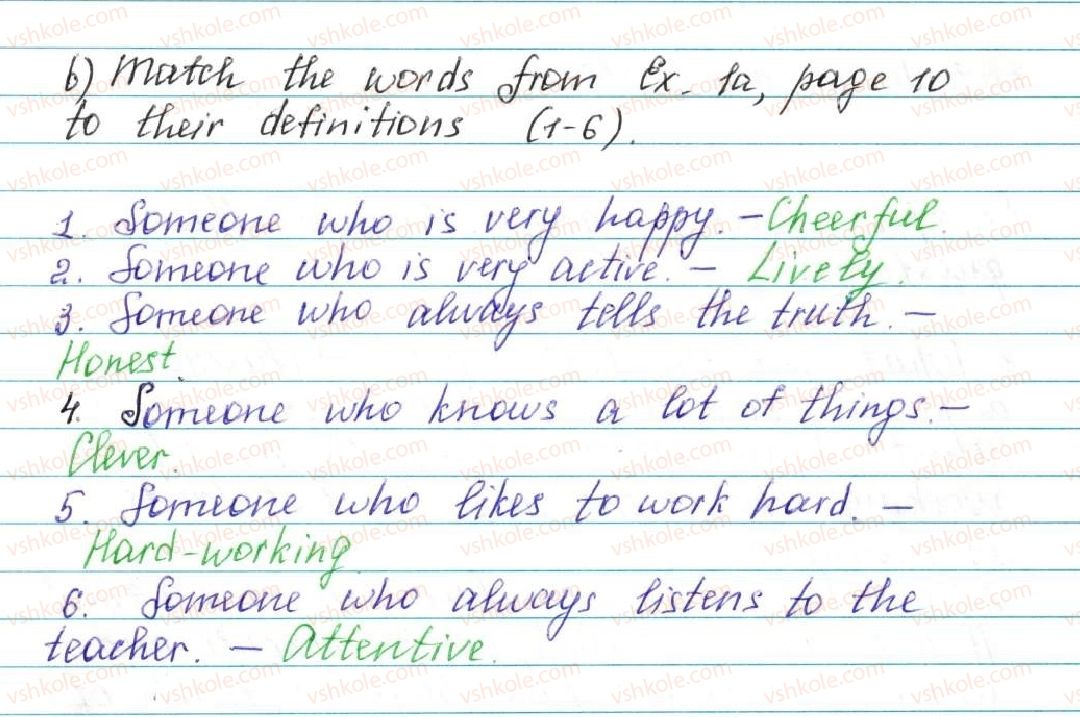 b) Match the words from Ex. 1a, page 10
to their definitions (1-6).
1. Someone who is very happy. - Cheerful.
2. Someone who is very active. - Lively.
3. Someone who always tells the truth. -
Honest.
4. Someone who knows a lot of things. -
Clever.
5. Someone who likes to work hard. -
Hard-working.
6. Someone who always listens to the
teacher. - Attentive.